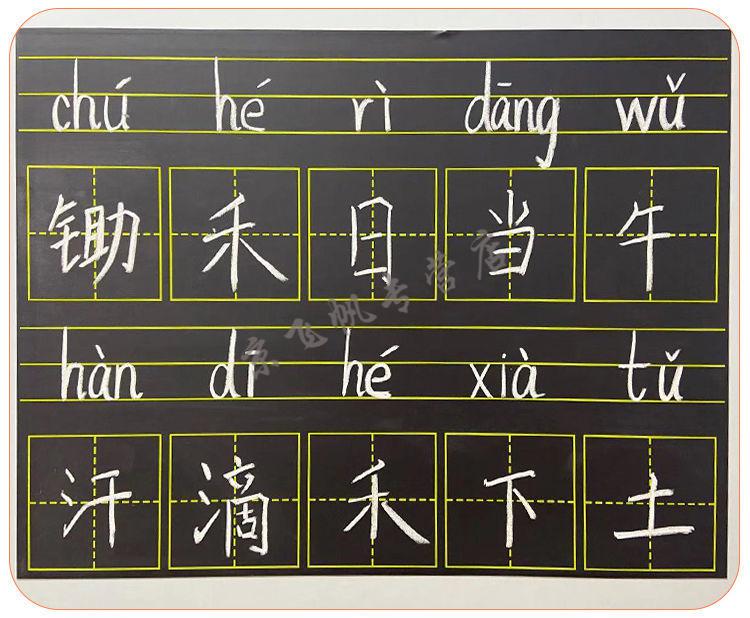 chú hé rì dāng wǔ
锄禾日当午
hàn dī hé xià tǔ
汗滴禾下土
京飞帆专营店